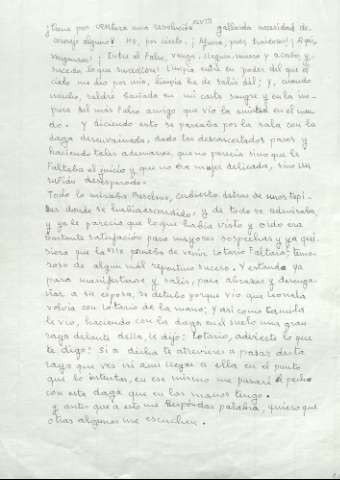 XLVIII
¿tiene por ventura una resolución gallarda necesidad de
consejo alguno? No, por cierto. ¡Afuera, pues, traidores! ¡Aquí,
venganzas! ¡Entre el falso, venga, llegue, muera y acabe, y
suceda lo que sucediere! Limpia entré en poder del que el
cielo me dio por mío, limpia he de salir dél; y, cuando
mucho, saldré bañada en mi casta sangre y en la im-
pura del más falso amigo que vio la amistad en el mun-
do. Y diciendo esto se paseaba por la sala con la
daga desenvainada, dando tan desconcertados pasos y
haciendo tales ademanes, que no parecía sino que le
faltaba el juicio y que no era mujer delicada, sino un
rufián desesperado.
Todo lo miraba Anselmo, cubierto detrás de unos tapi-
ces donde se había escondido, y de todo se admiraba,
y ya le parecía que lo que había visto y oído era
bastante satisfación para mayores sospechas y ya qui-
siera que la prueba de venir Lotario faltara, teme-
roso de algún mal repentino suceso. Y estando ya
para manifestarse y salir, para abrazar y desenga-
ñar a su esposa, se detubo porque vio que Leonela
volvía con Lotario de la mano; Y así como Camila
le vio, haciendo con la daga en el suelo una gran
raya delante della, le dijo: Lotario, advierte lo que
te digo: Si a dicha te atrevieres a pasar desta
raya que ves ni aun llegar a ella en el punto
que lo intentas, en ese mismo me pasaré el pecho
con esta daga que en las manos tengo.
Y antes que a esto me respondas palabra, quiero que
otras algunas me escuchen.